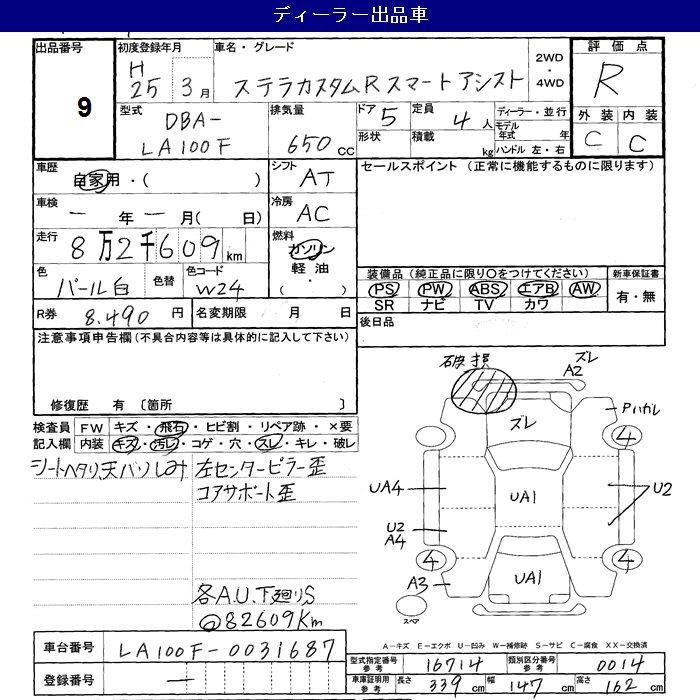 ディーラー出品車
出品番号 9
初度登録年月 H 25 3月
車名・グレード ステラカスタムR スマートアシスト
2WD・4WD
評価点 R
外装 内装
C C
型式 DBA-LA100F
排気量 650 cc
ドア 5 形状
定員 4人 積載 kg
ディーラー・並行
モデル年式 年
ハンドル 左・右
車歴 自家用・( )
シフト AT
セールスポイント (正常に機能するものに限ります)
車検 ー年ー月( 日)
冷房 AC
走行 8万2千609km
燃料 ガソリン 軽油 ( ・ )
色 パール白 色替 色コード W24
装備品(純正品に限り○をつけてください)
新車保証書
PS PW ABS エアB AW 有・無
SR ナビ TV カワ
R券 8,490 円 名変期限 月 日
後日品
注意事項申告欄(不具合内容等は具体的に記入して下さい)
修復歴 有 〔箇所 〕
検査員記入欄
FW キズ・飛石・ヒビ割・リペア跡・×要
内装 キズ・汚レ・コゲ・穴・スレ・キレ・破レ
シートヘタリ、天バリしみ
左センターピラー歪
コアサポート歪
各A.U、下廻りS
82609Km
破損
ズレ
A2
ズレ
Pハガレ
4
UA4
UA1
U2
U2
A4
4
4
A3
UA1
スペア
A-キズ E-エクボ U-凹み W-補修跡 S-サビ C-腐食 XX-交換済
車台番号 LA100F-0031687
登録番号 ー
型式指定番号 参考 16714 類別区分番号 参考 0014
車庫証明用 参考 長さ 339 cm 幅 147 cm 高さ 162 cm